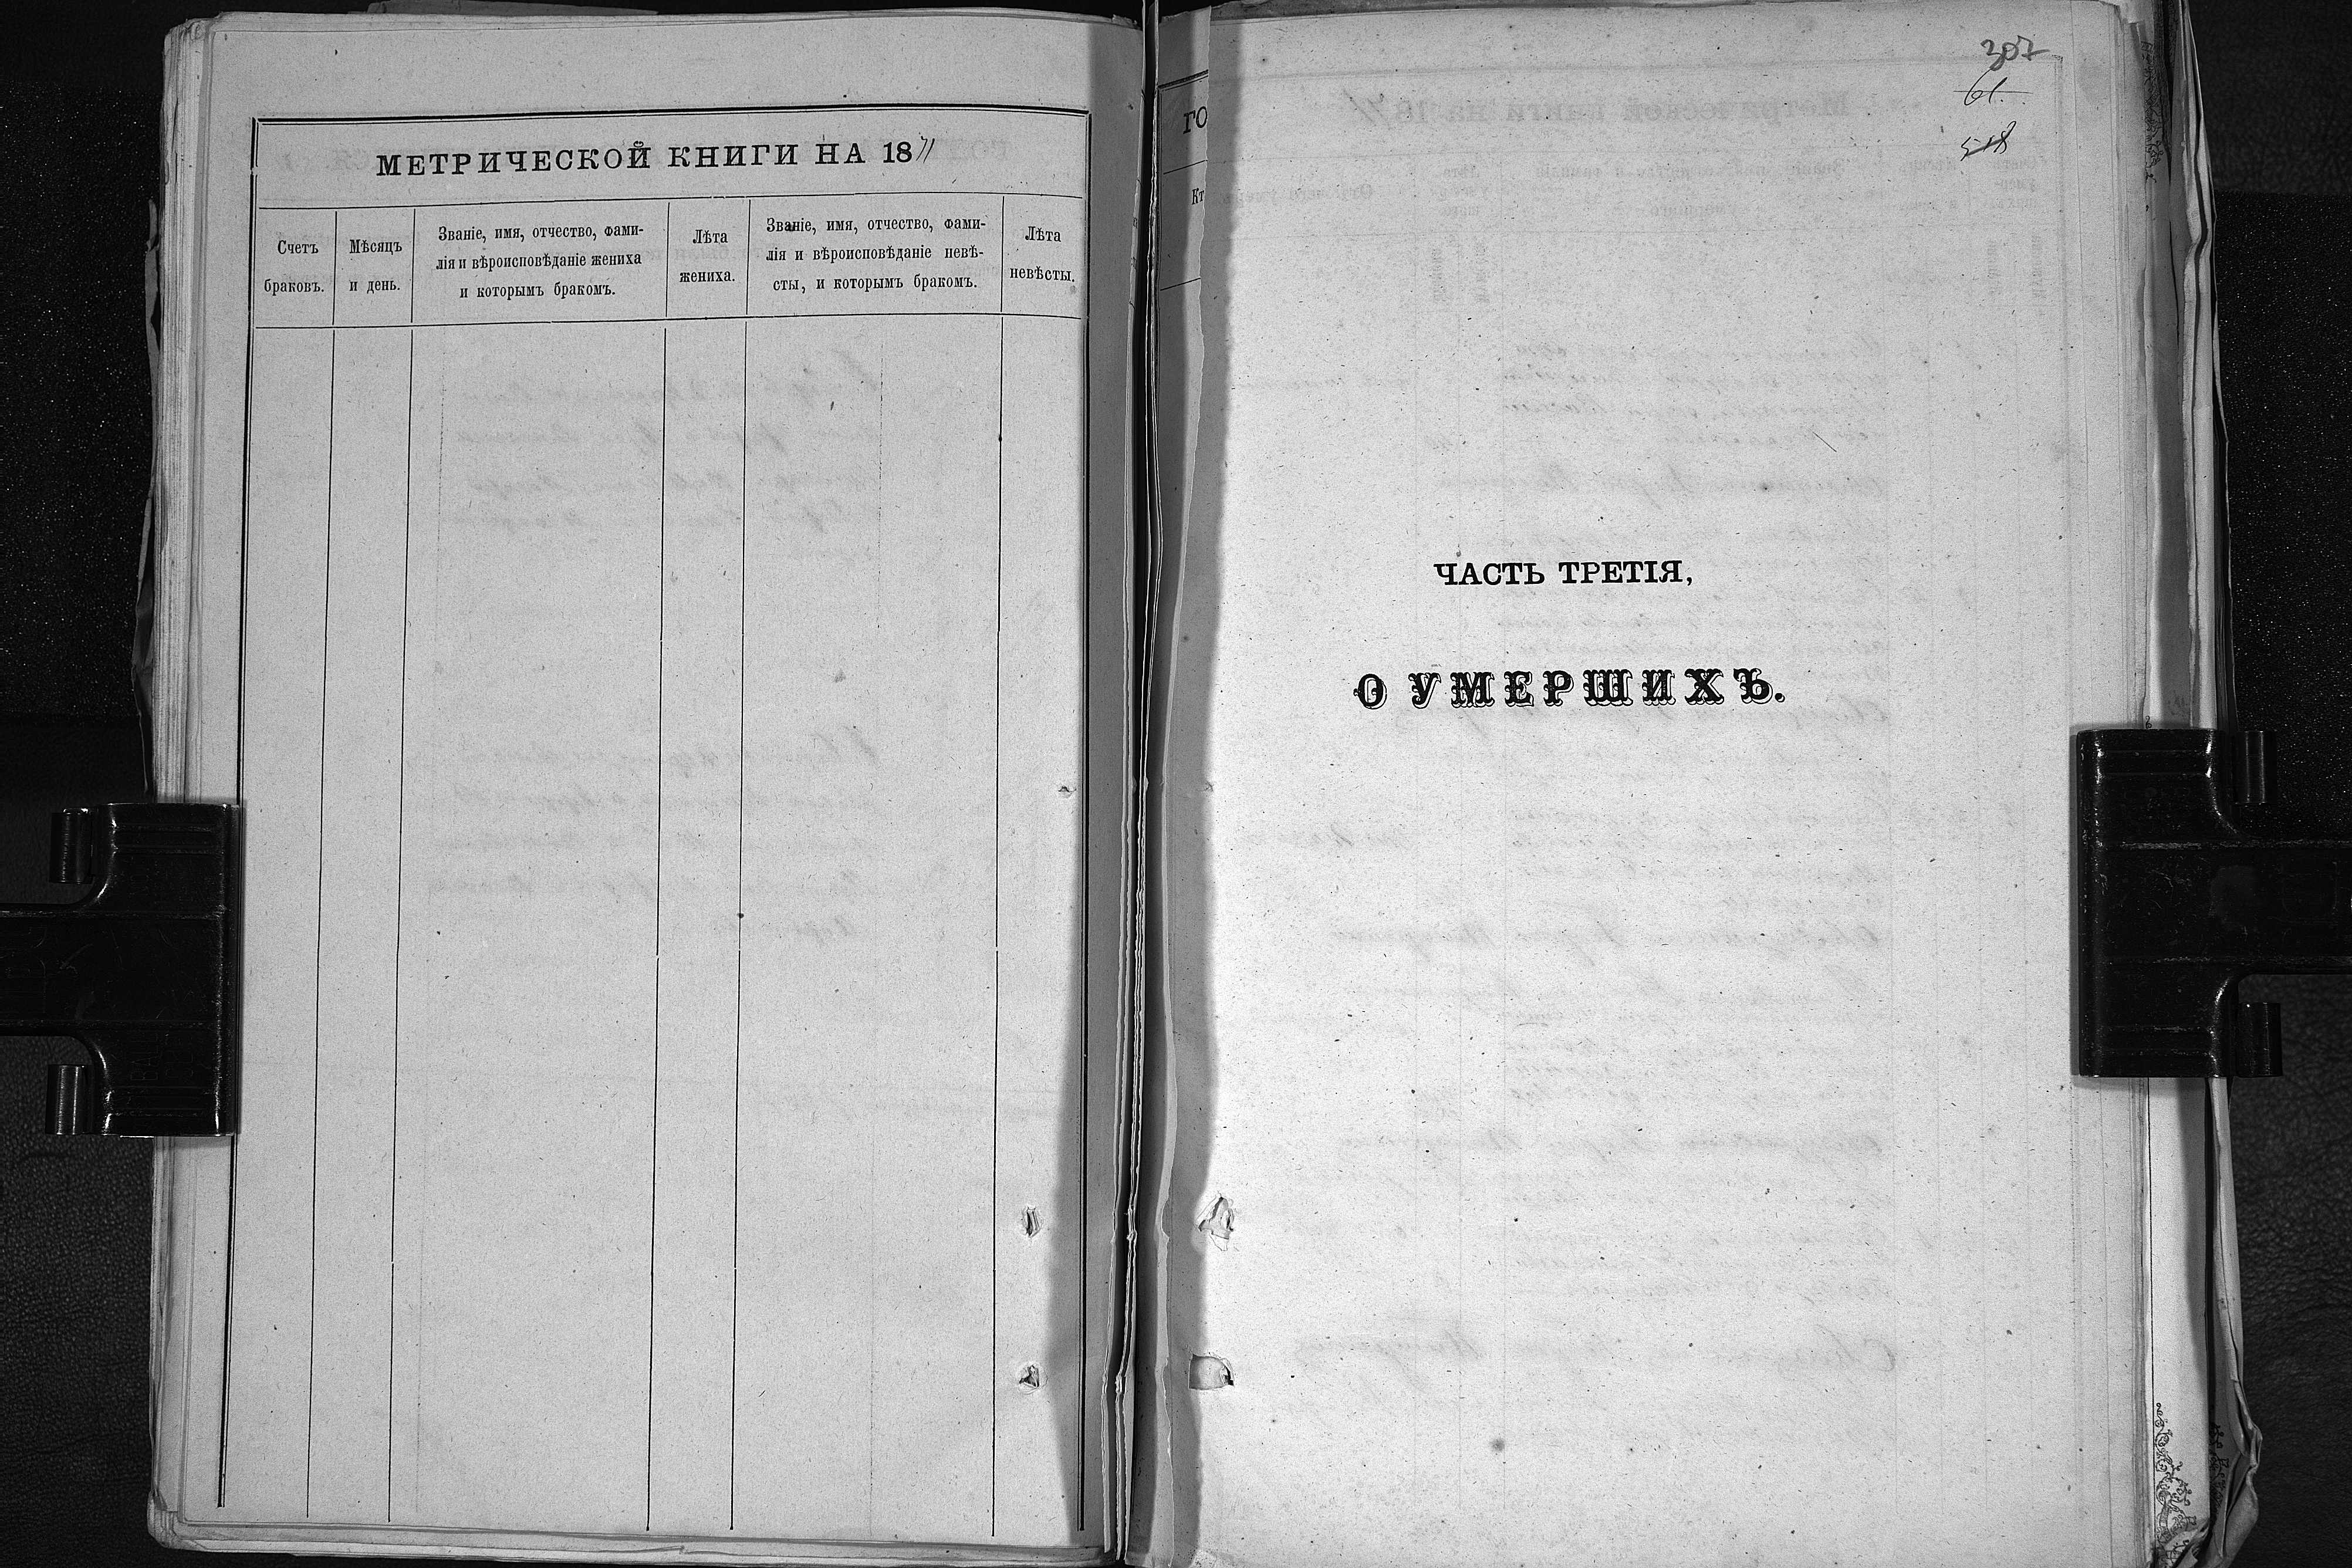 МЕТРИЧЕСКОЙ КНИГИ НА 1871
Счетъ
браковъ.
Мѣсяцъ
и день.
Званіе, имя, отчество, фами-
лія и вѣроисповѣданіе жениха
и которымъ бракомъ.
Лѣта
жениха.
Званіе, имя, отчество, фами-
лія и вѣроисповѣданіе невѣ-
сты, и которымъ бракомъ.
Лѣта
невѣсты.
ГО
Кт
307
61.
518
ЧАСТЬ ТРЕТІЯ,
О УМЕРШИХЪ.